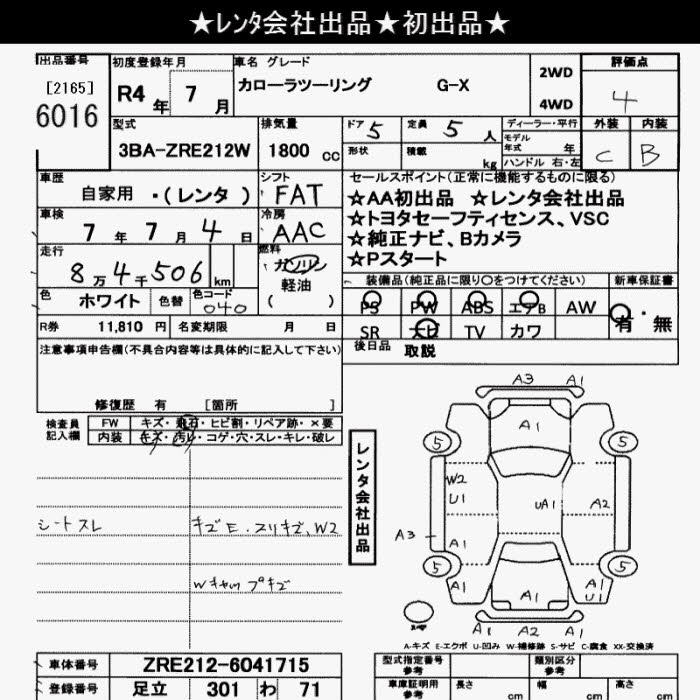 ★レンタ会社出品★初出品★
出品番号 初度登録年月 車名 グレード 評価点
[2165] カローラツーリング G-X 2WD
6016 R4 年 7 月 4WD 4
型式 排気量 ドア 5 定員 5 人 ディーラー・平行 外装 内装
3BA-ZRE212W 1800 cc 形状 積載 kg モデル年式 年 C B
ハンドル 右・左
車歴 シフト セールスポイント(正常に機能するものに限る)
自家用 ・(レンタ ) FAT ★AA初出品 ★レンタ会社出品
車検 冷房 ★トヨタセーフティセンス、VSC
7 年 7 月 4 日 AAC ★純正ナビ、Bカメラ
走行 燃料 ★Pスタート
8 万 4 千 506 km ガソリン 装備品(純正品に限り○をつけてください) 新車保証書
色 ホワイト 色替 色コード 040 軽油 ( ) PS PW ABS エアB AW 有・無
R券 11,810 円 名変期限 月 日 SR ナビ TV カワ
注意事項申告欄(不具合内容等は具体的に記入して下さい) 後日品 取説
修復歴 有 [箇所 ]
検査員記入欄 FW キズ・飛石・ヒビ割・リペア跡・×要
内装 キズ・汚レ・コゲ・穴・スレ・キレ・破レ
シートスレ キズE.スリキズ、W2
Wキャップキズ
レンタ会社出品
A3 A1
A1
5 5
W2
U1 UA1 A2
A3 A1
5 5
A1 A1 A1
U1
A1 A2 A1
A-キズ E-エクボ U-凹み W-補修跡 S-サビ C-腐食 XX-交換済
車体番号 ZRE212-6041715 型式指定番号 参考 類別区分 参考
登録番号 足立 301 わ 71 車庫証明用 参考 長さ cm 幅 cm 高さ cm